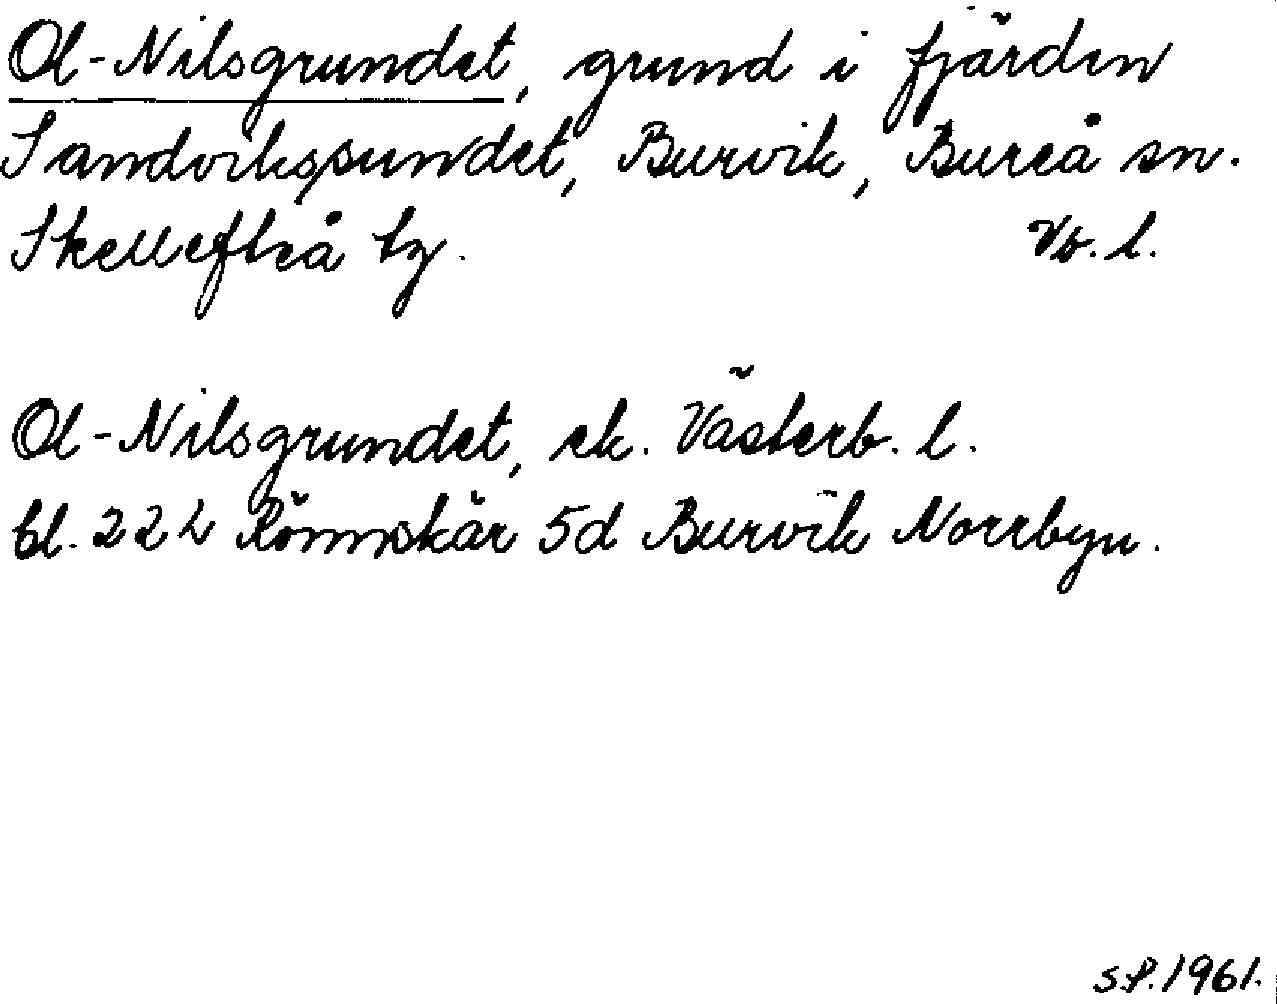 Ol-Nilsgrundet, grund i fjärden
Sandvikssundet, Burvik, Bureå sn.
Skellefteå tg. Vb. l.
Ol-Nilsgrundet, ek. Västerb. l.
bl. 22 L Rönnskär 5d Burvik Norrbyn.
S.P. 1961.